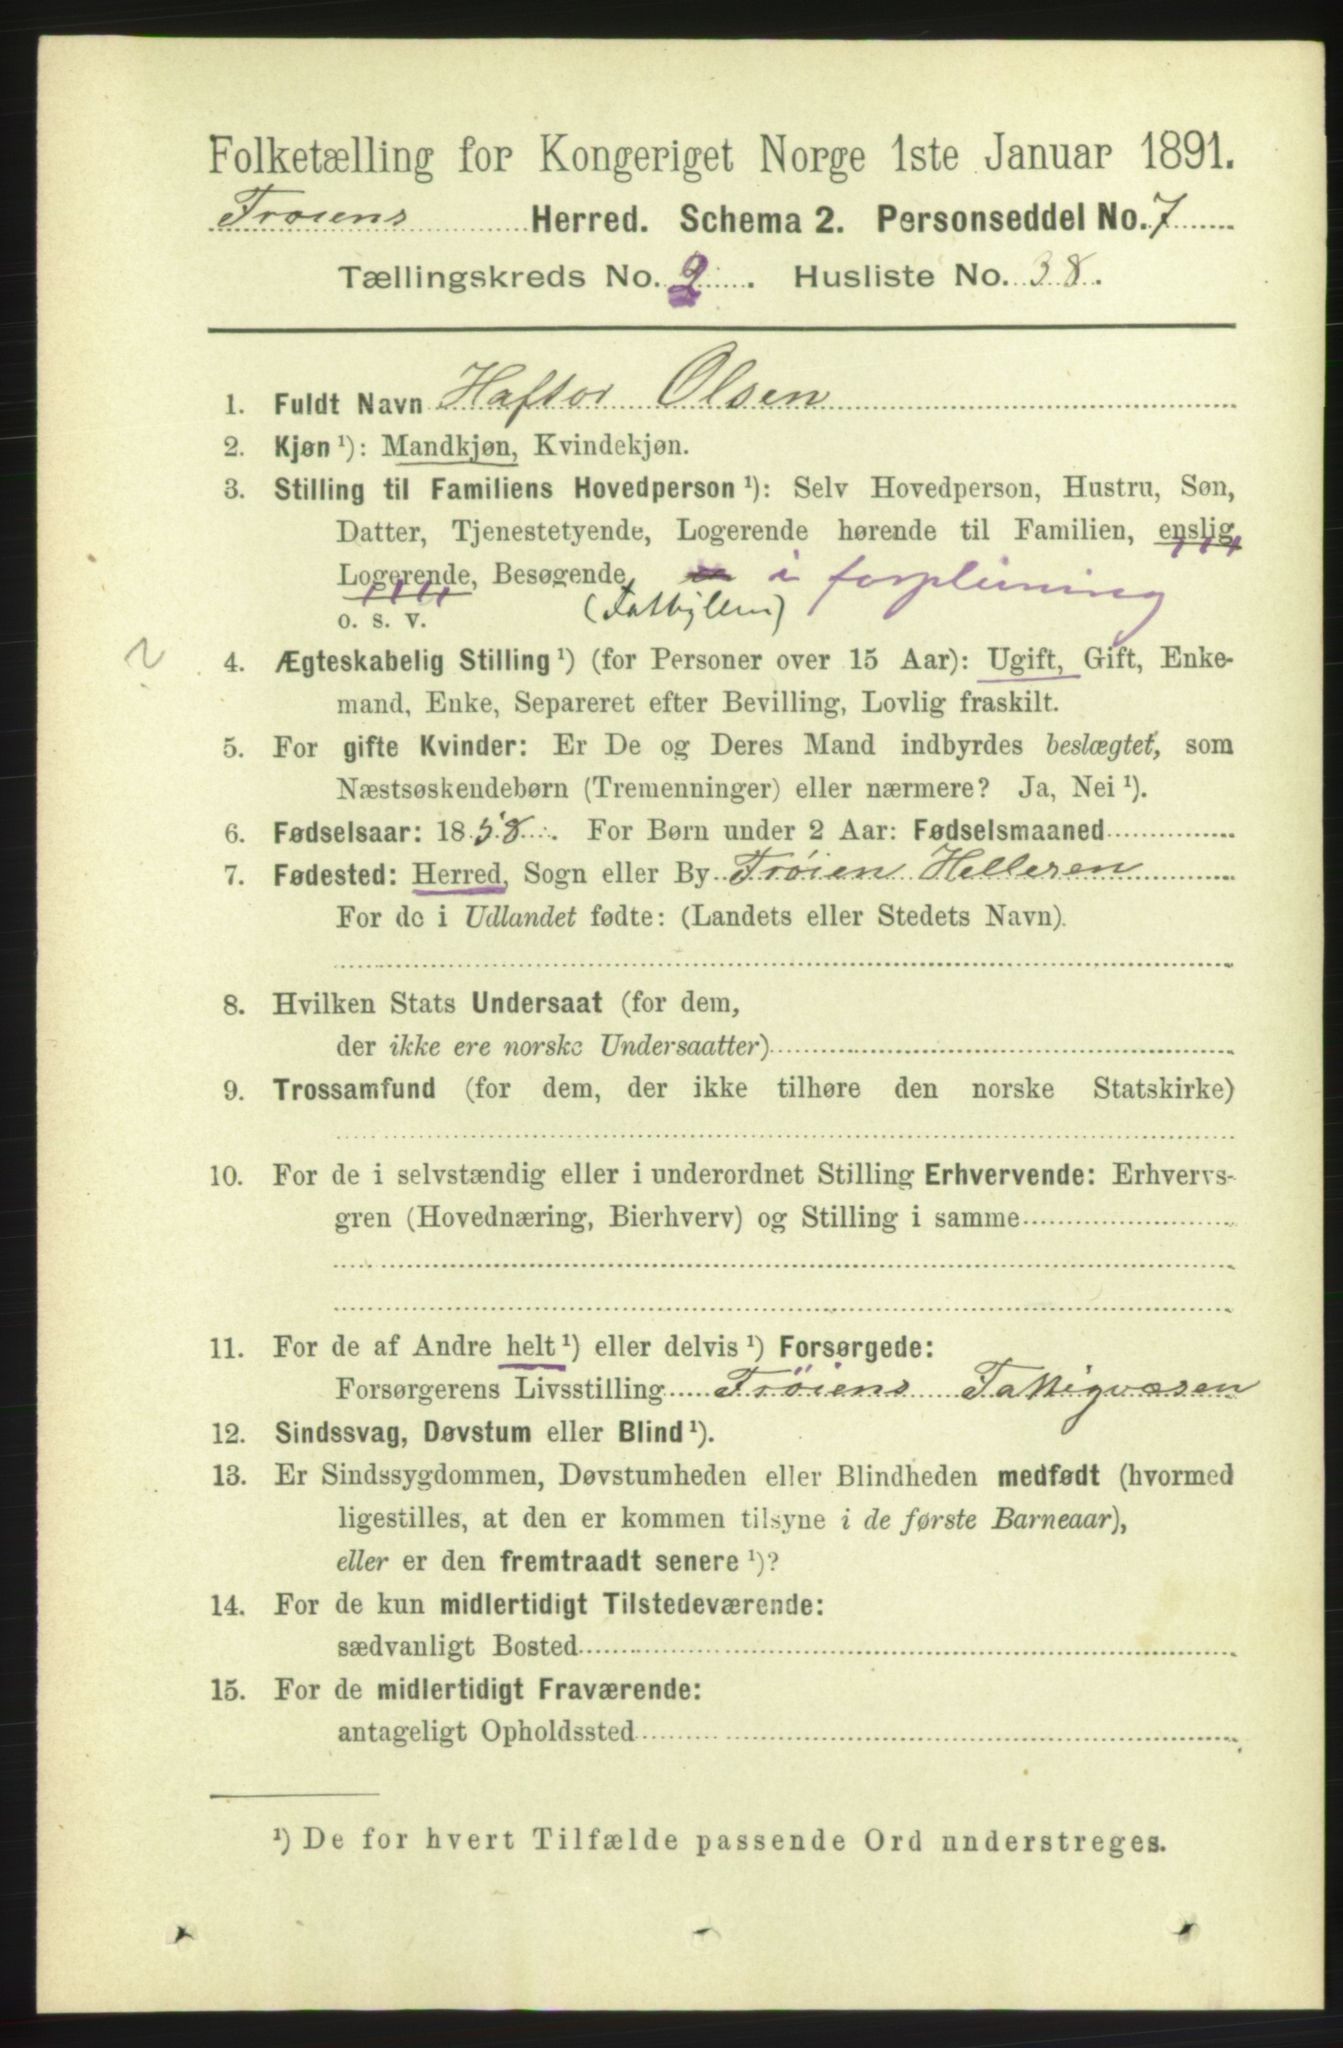 Folketælling for Kongeriget Norge 1ste Januar 1891.
Troiens Herred. Schema 2. Personseddel No. 7
Tællingskreds No. 2. Husliste No. 38.
1. Fuldt Navn Haftor Olsen
2. Kjøn ¹): Mandkjøn, Kvindekjøn.
3. Stilling til Familiens Hovedperson ¹): Selv Hovedperson, Hustru, Søn,
Datter, Tjenestetyende, Logerende hørende til Familien, enslig
Logerende, Besøgende, i forpleining
o. s. v.
4. Ægteskabelig Stilling ¹) (for Personer over 15 Aar): Ugift, Gift, Enke-
mand, Enke, Separeret efter Bevilling, Lovlig fraskilt.
5. For gifte Kvinder: Er De og Deres Mand indbyrdes beslægtet, som
Næstsøskendebørn (Tremenninger) eller nærmere? Ja, Nei ¹).
6. Fødselsaar: 1858. For Børn under 2 Aar: Fødselsmaaned
7. Fødested: Herred, Sogn eller By Trøien Helleren
For de i Udlandet fødte: (Landets eller Stedets Navn).
8. Hvilken Stats Undersaat (for dem,
der ikke ere norske Undersaatter)
9. Trossamfund (for dem, der ikke tilhøre den norske Statskirke)
10. For de i selvstændig eller i underordnet Stilling Erhvervende: Erhvervs-
gren (Hovednæring, Bierhverv) og Stilling i samme
11. For de af Andre helt ¹) eller delvis ¹) Forsørgede:
Forsørgerens Livsstilling Trøiens Fattigvæsen
12. Sindssvag, Døvstum eller Blind ¹).
13. Er Sindssygdommen, Døvstumheden eller Blindheden medfødt (hvormed
ligestilles, at den er kommen tilsyne i de første Barneaar),
eller er den fremtraadt senere ¹)?
14. For de kun midlertidigt Tilstedeværende:
sædvanligt Bosted
15. For de midlertidigt Fraværende:
antageligt Opholdssted
¹) De for hvert Tilfælde passende Ord understreges.